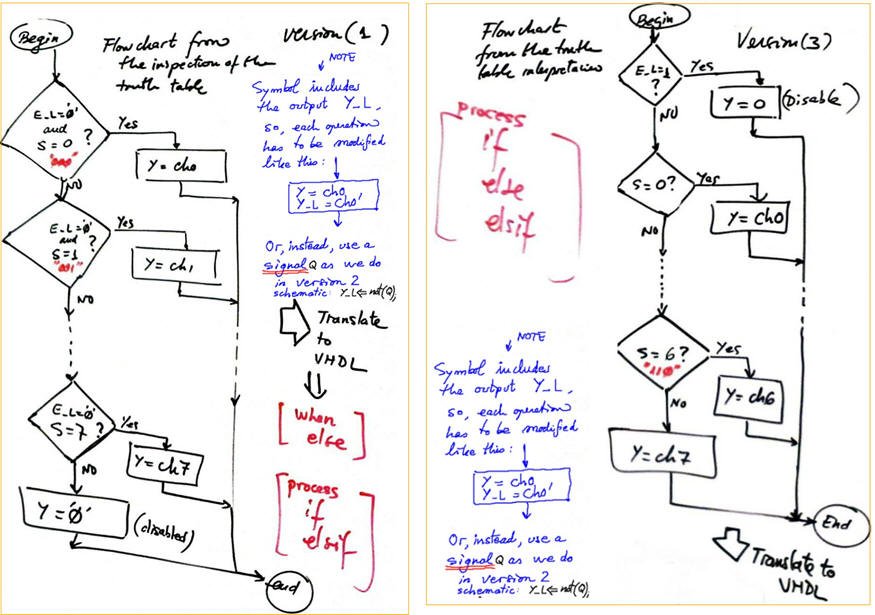 Begin
Flow chart from
the inspection of the
truth table
Version (1)
NOTE
Symbol includes
the output Y_L,
so, each operation
has to be modified
like this:
Y = ch0
Y_L = Ch0'
Or, instead, use a
signal Q as we do
in version 2
schematic: Y_L <= not(Q);
Translate
to
VHDL
[when
else]
[process
if
elsif]
E_L='0'
and
S = 0 ?
"000"
Yes
Y = ch0
NO
E_L='0'
and ?
S=1
"001"
Yes
Y = ch1
NO
E_L='0'
S=7 ?
Yes
Y = ch7
NO
Y = '0'
(disabled)
end
Begin
Flowchart
from the truth
table interpretation
Version (3)
E_L=1
?
Yes
Y = 0
(Disable)
NO
S=0?
Yes
Y = Ch0
NO
[process
if
else
elsif]
NOTE
Symbol includes
the output Y_L,
so, each operation
has to be modified
like this:
Y = ch0
Y_L = Ch0'
Or, instead, use a
signal Q as we do
in version 2
schematic: Y_L <= not(Q);
S=6?
"110"
Yes
Y = ch6
NO
Y = ch7
End
Translate to
VHDL